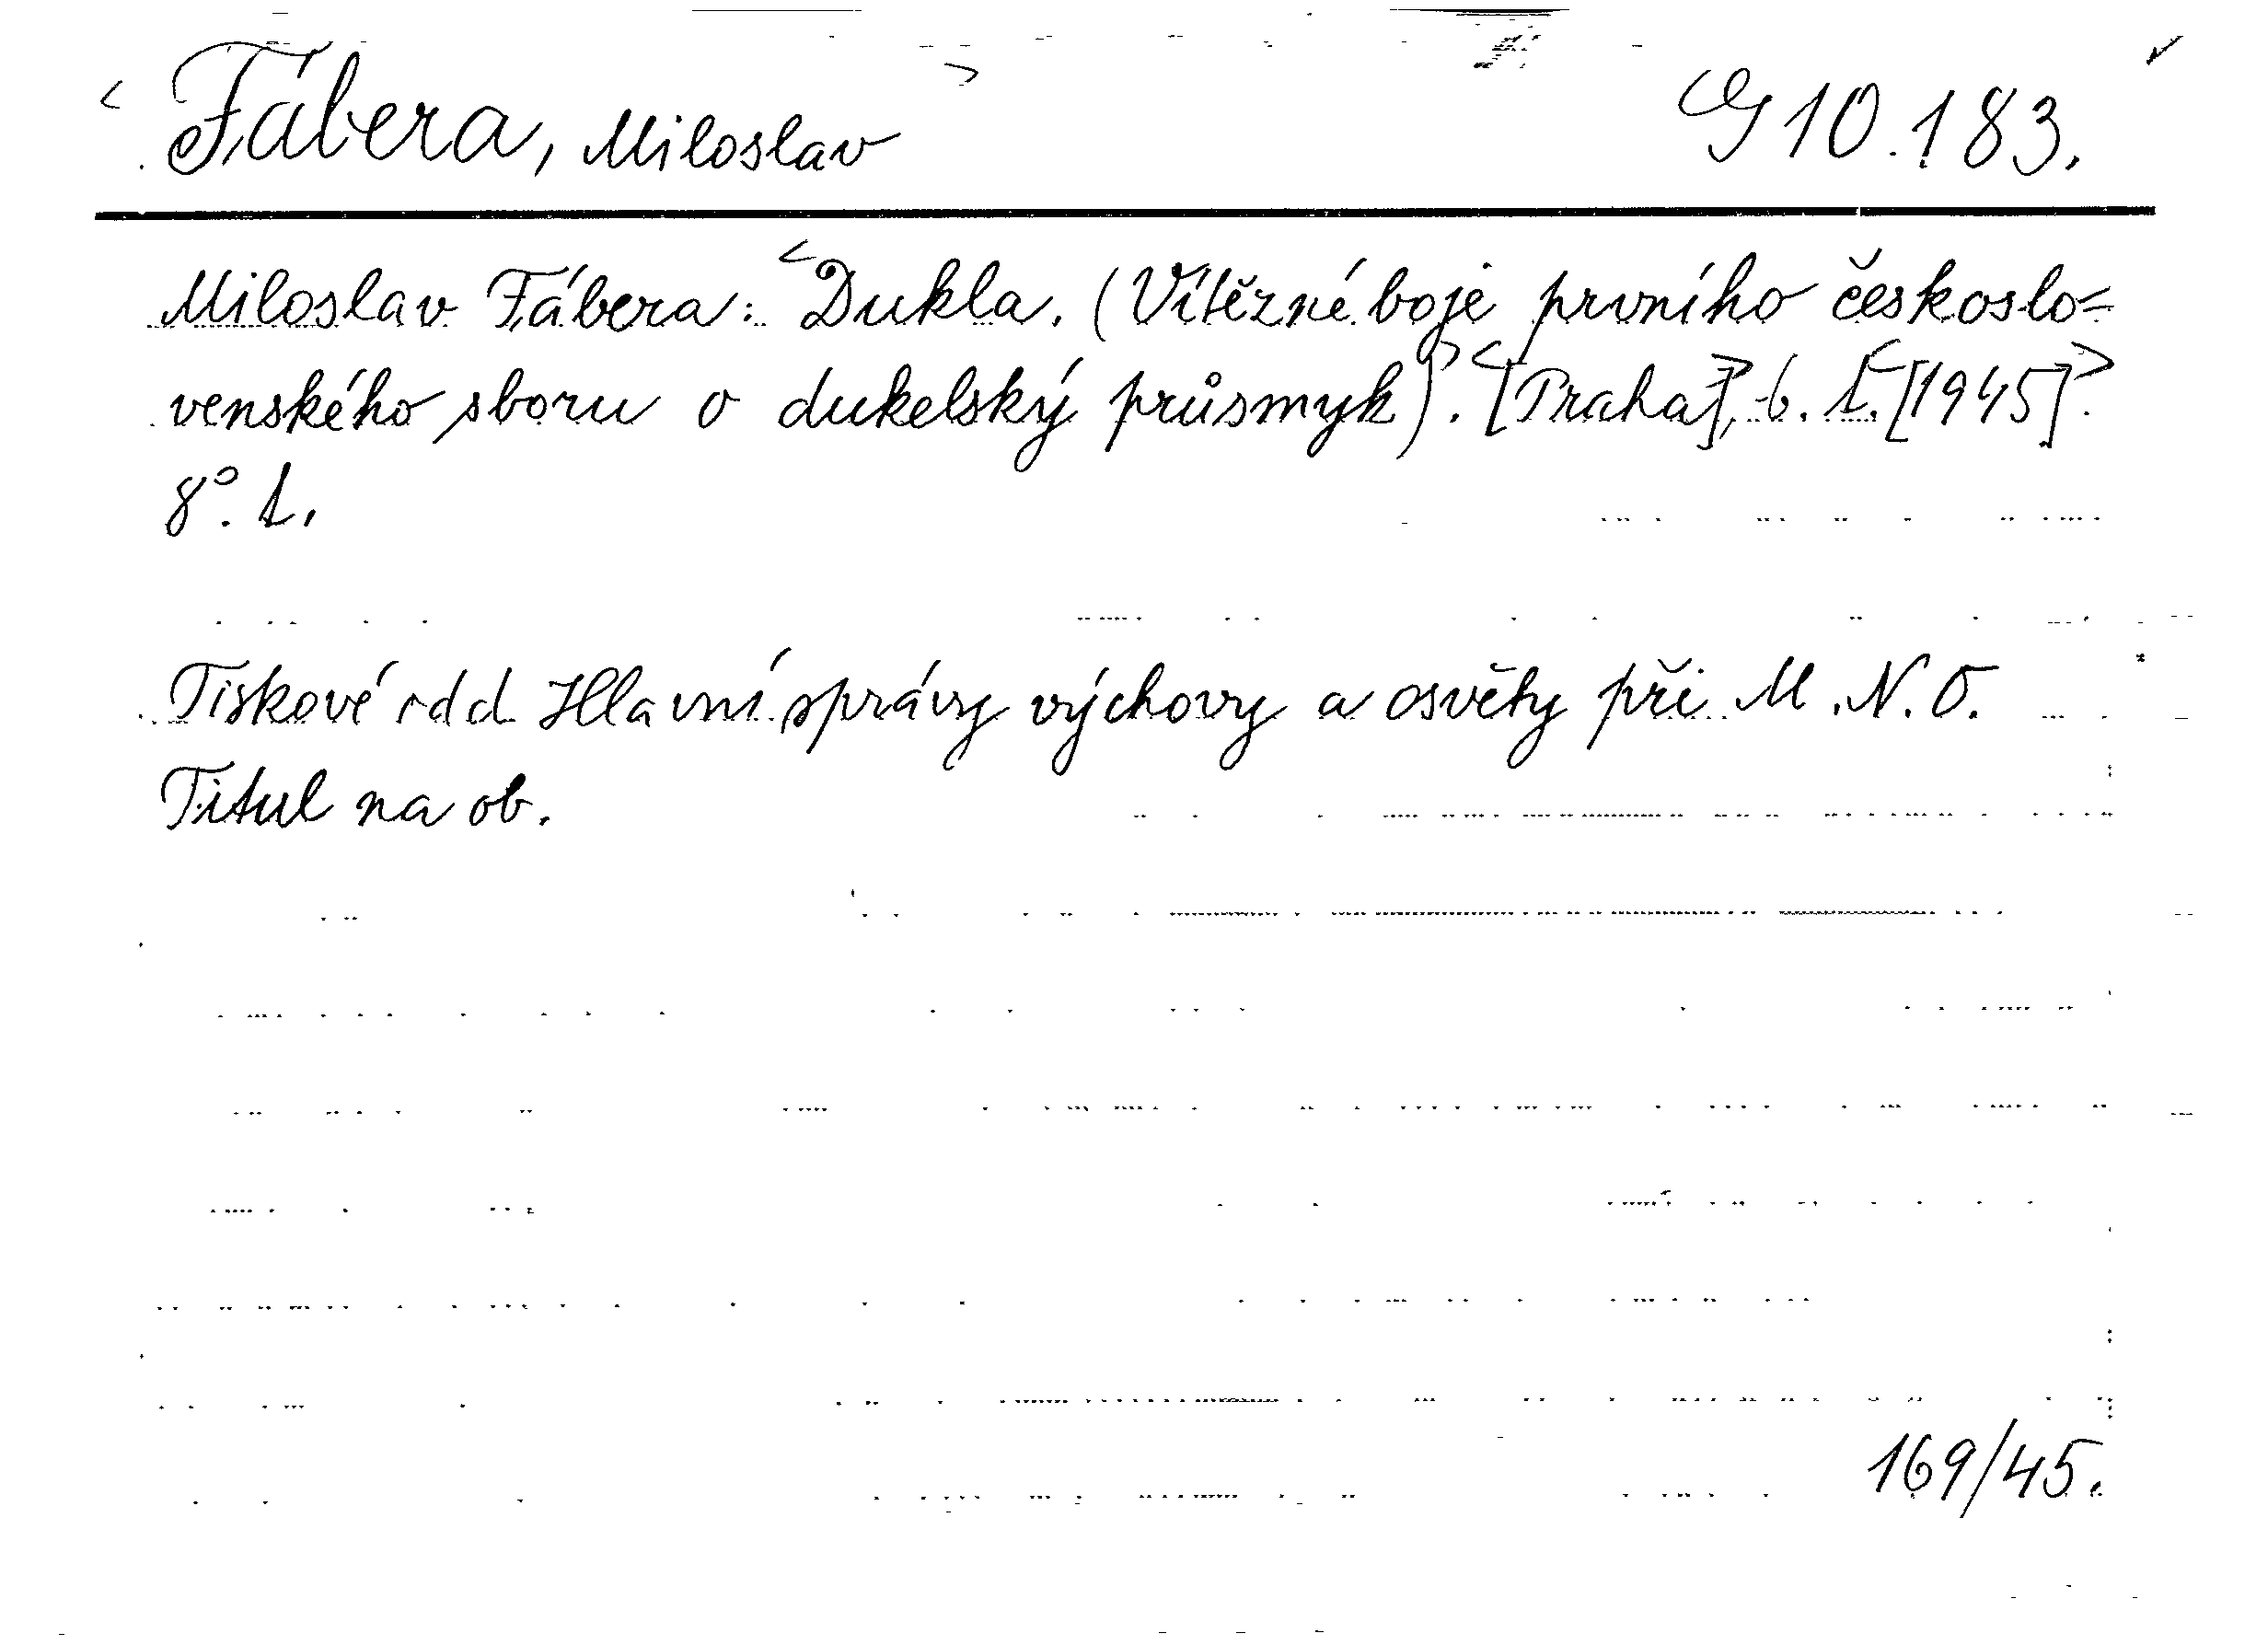 <Fábera, Miloslav> G 10.183.
Miloslav Fábera: <Dukla. (Vítězné boje prvního českoslo=
venského sboru o dukelský průsmyk)>. <[Praha]>, b. t. <[1945]>.
8°. t.
Tiskové odd Hlavní správy výchovy a osvěty při M.N.O.
Titul na ob.
169/45.